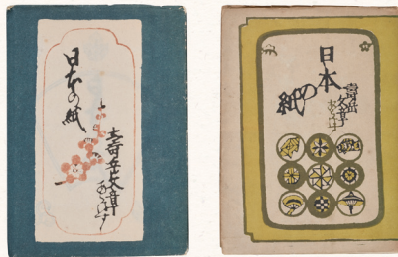 日本の紙
壽岳文章
あらはす
日本
の紙
壽岳
文章